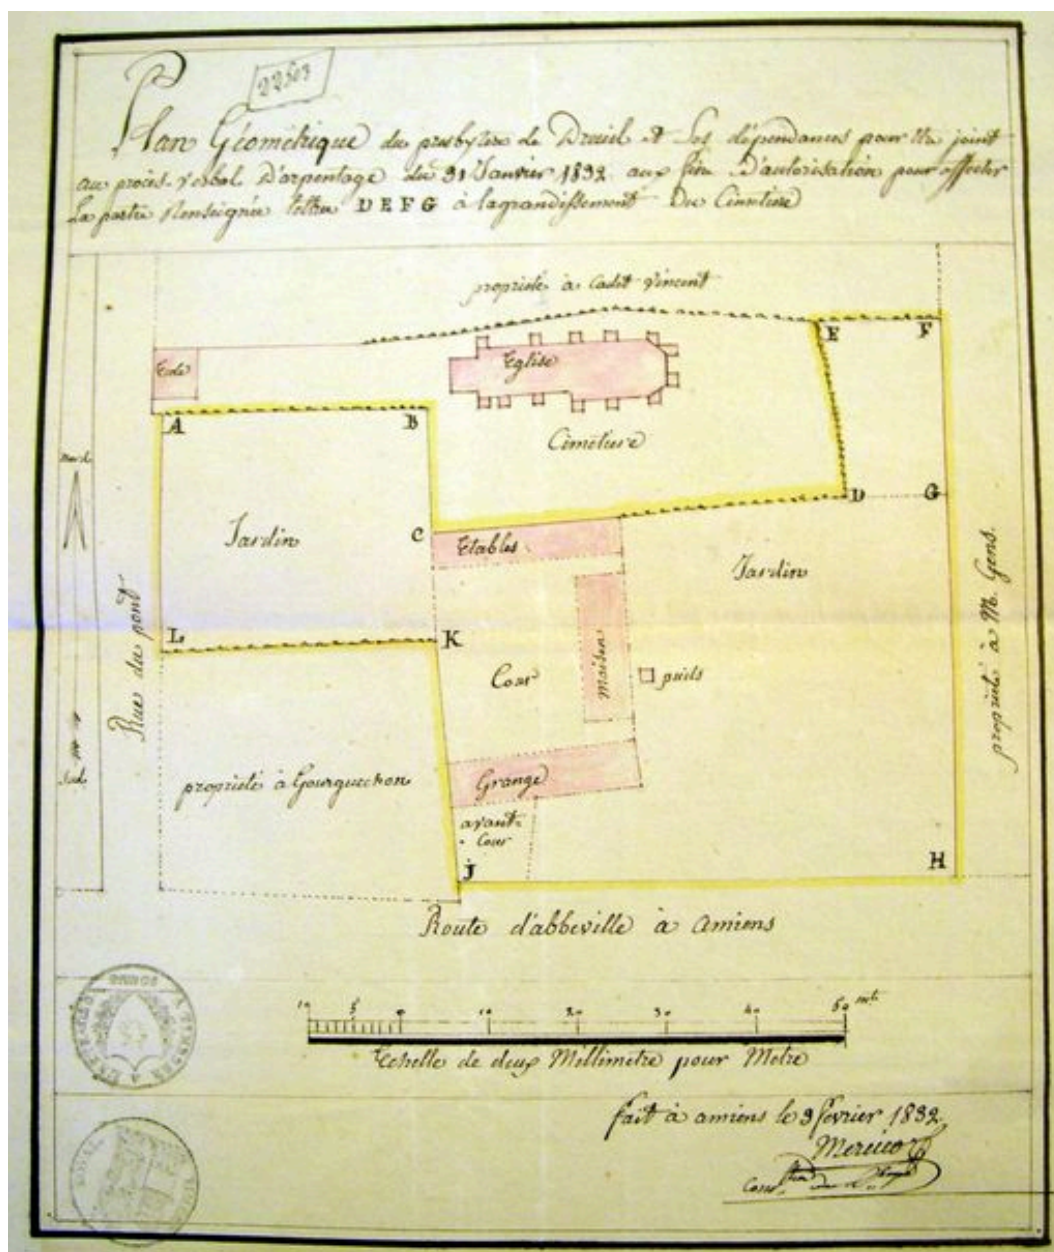 22503
Plan Géométrique du presbytère de Dreuil et Ses dépendances pour être joint
au procès-verbal D'arpentage du 31 Janvier 1832 aux fins D'autorisation pour affecter
La partie Renseignée lettres D E F G à lagrandissement Du Cimetière
propriété à Cadet Vincent
E
F
Ecole
Eglise
A
B
Cimetière
Nord
D
G
Jardin
C
Etables
Jardin
L
K
Rue du pont
Cour
Maison
puits
propriété à M. Gens.
Sud
propriété à Gourguechon
Grange
avant-
Cour
J
H
Route d'abbeville à amiens
10 5 0 10 20 30 40 50 mts
Echelle de deux Millimètre pour Mètre
fait à amiens le 3 février 1832